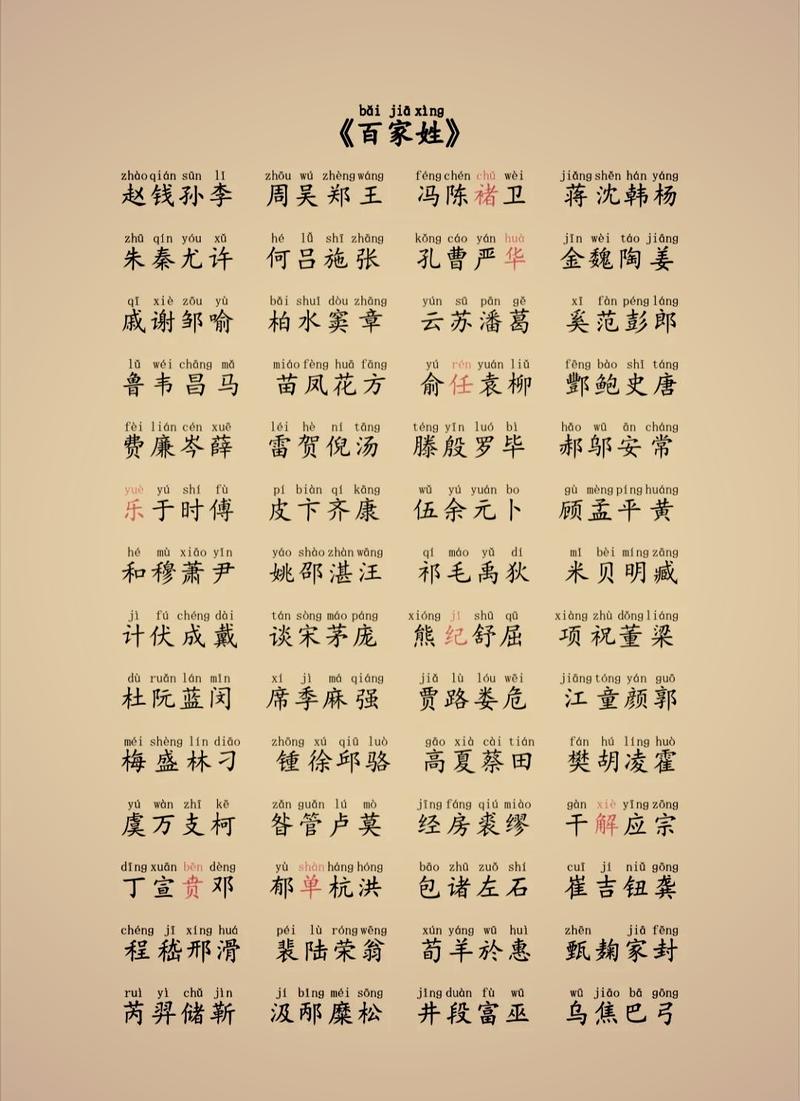 bǎi jiā xìng
《百家姓》
zhào qián sūn lǐ zhōu wú zhèng wáng féng chén chǔ wèi jiǎng shěn hán yáng
赵钱孙李 周吴郑王 冯陈褚卫 蒋沈韩杨
zhū qín yóu xǔ hé lǚ shī zhāng kǒng cáo yán huà jīn wèi táo jiāng
朱秦尤许 何吕施张 孔曹严华 金魏陶姜
qī xiè zōu yù bǎi shuǐ dòu zhāng yún sū pān gě xī fàn péng láng
戚谢邹喻 柏水窦章 云苏潘葛 奚范彭郎
lǔ wéi chāng mǎ miáo fèng huā fāng yú rén yuán liǔ fēng bào shǐ táng
鲁韦昌马 苗凤花方 俞任袁柳 酆鲍史唐
fèi lián cén xuē léi hè ní tāng téng yīn luó bì hǎo wū ān cháng
费廉岑薛 雷贺倪汤 滕殷罗毕 郝邬安常
yuè yú shí fù pí biàn qí kāng wǔ yú yuán bo gù mèng píng huáng
乐于时傅 皮卞齐康 伍余元卜 顾孟平黄
hé mù xiāo yǐn yáo shào zhàn wāng qí máo yǔ dí mǐ bèi míng zāng
和穆萧尹 姚邵湛汪 祁毛禹狄 米贝明臧
jì fú chéng dài tán sòng máo páng xióng jǐ shū qū xiàng zhù dǒng liáng
计伏成戴 谈宋茅庞 熊纪舒屈 项祝董梁
dù ruǎn lán mǐn xí jì má qiáng jiǎ lù lóu wēi jiāng tóng yán guō
杜阮蓝闵 席季麻强 贾路娄危 江童颜郭
méi shèng lín diāo zhōng xú qiū luò gāo xià cài tián fán hú líng huò
梅盛林刁 锺徐邱骆 高夏蔡田 樊胡凌霍
yú wàn zhī kē zǎn guǎn lú mò jīng fáng qiú miào gàn xiè yīng zōng
虞万支柯 昝管卢莫 经房裘缪 干解应宗
dīng xuān bēn dèng yù shàn háng hóng bāo zhū zuǒ shí cuī jí niǔ gōng
丁宣贲邓 郁单杭洪 包诸左石 崔吉钮龚
chéng jī xíng huá péi lù róng wēng xún yáng wū huì zhēn jiā fēng
程嵇邢滑 裴陆荣翁 荀羊於惠 甄麹家封
ruì yì chǔ jìn jí bǐng méi sōng jǐng duàn fù wū wū jiāo bā gōng
芮羿储靳 汲邴糜松 井段富巫 乌焦巴弓